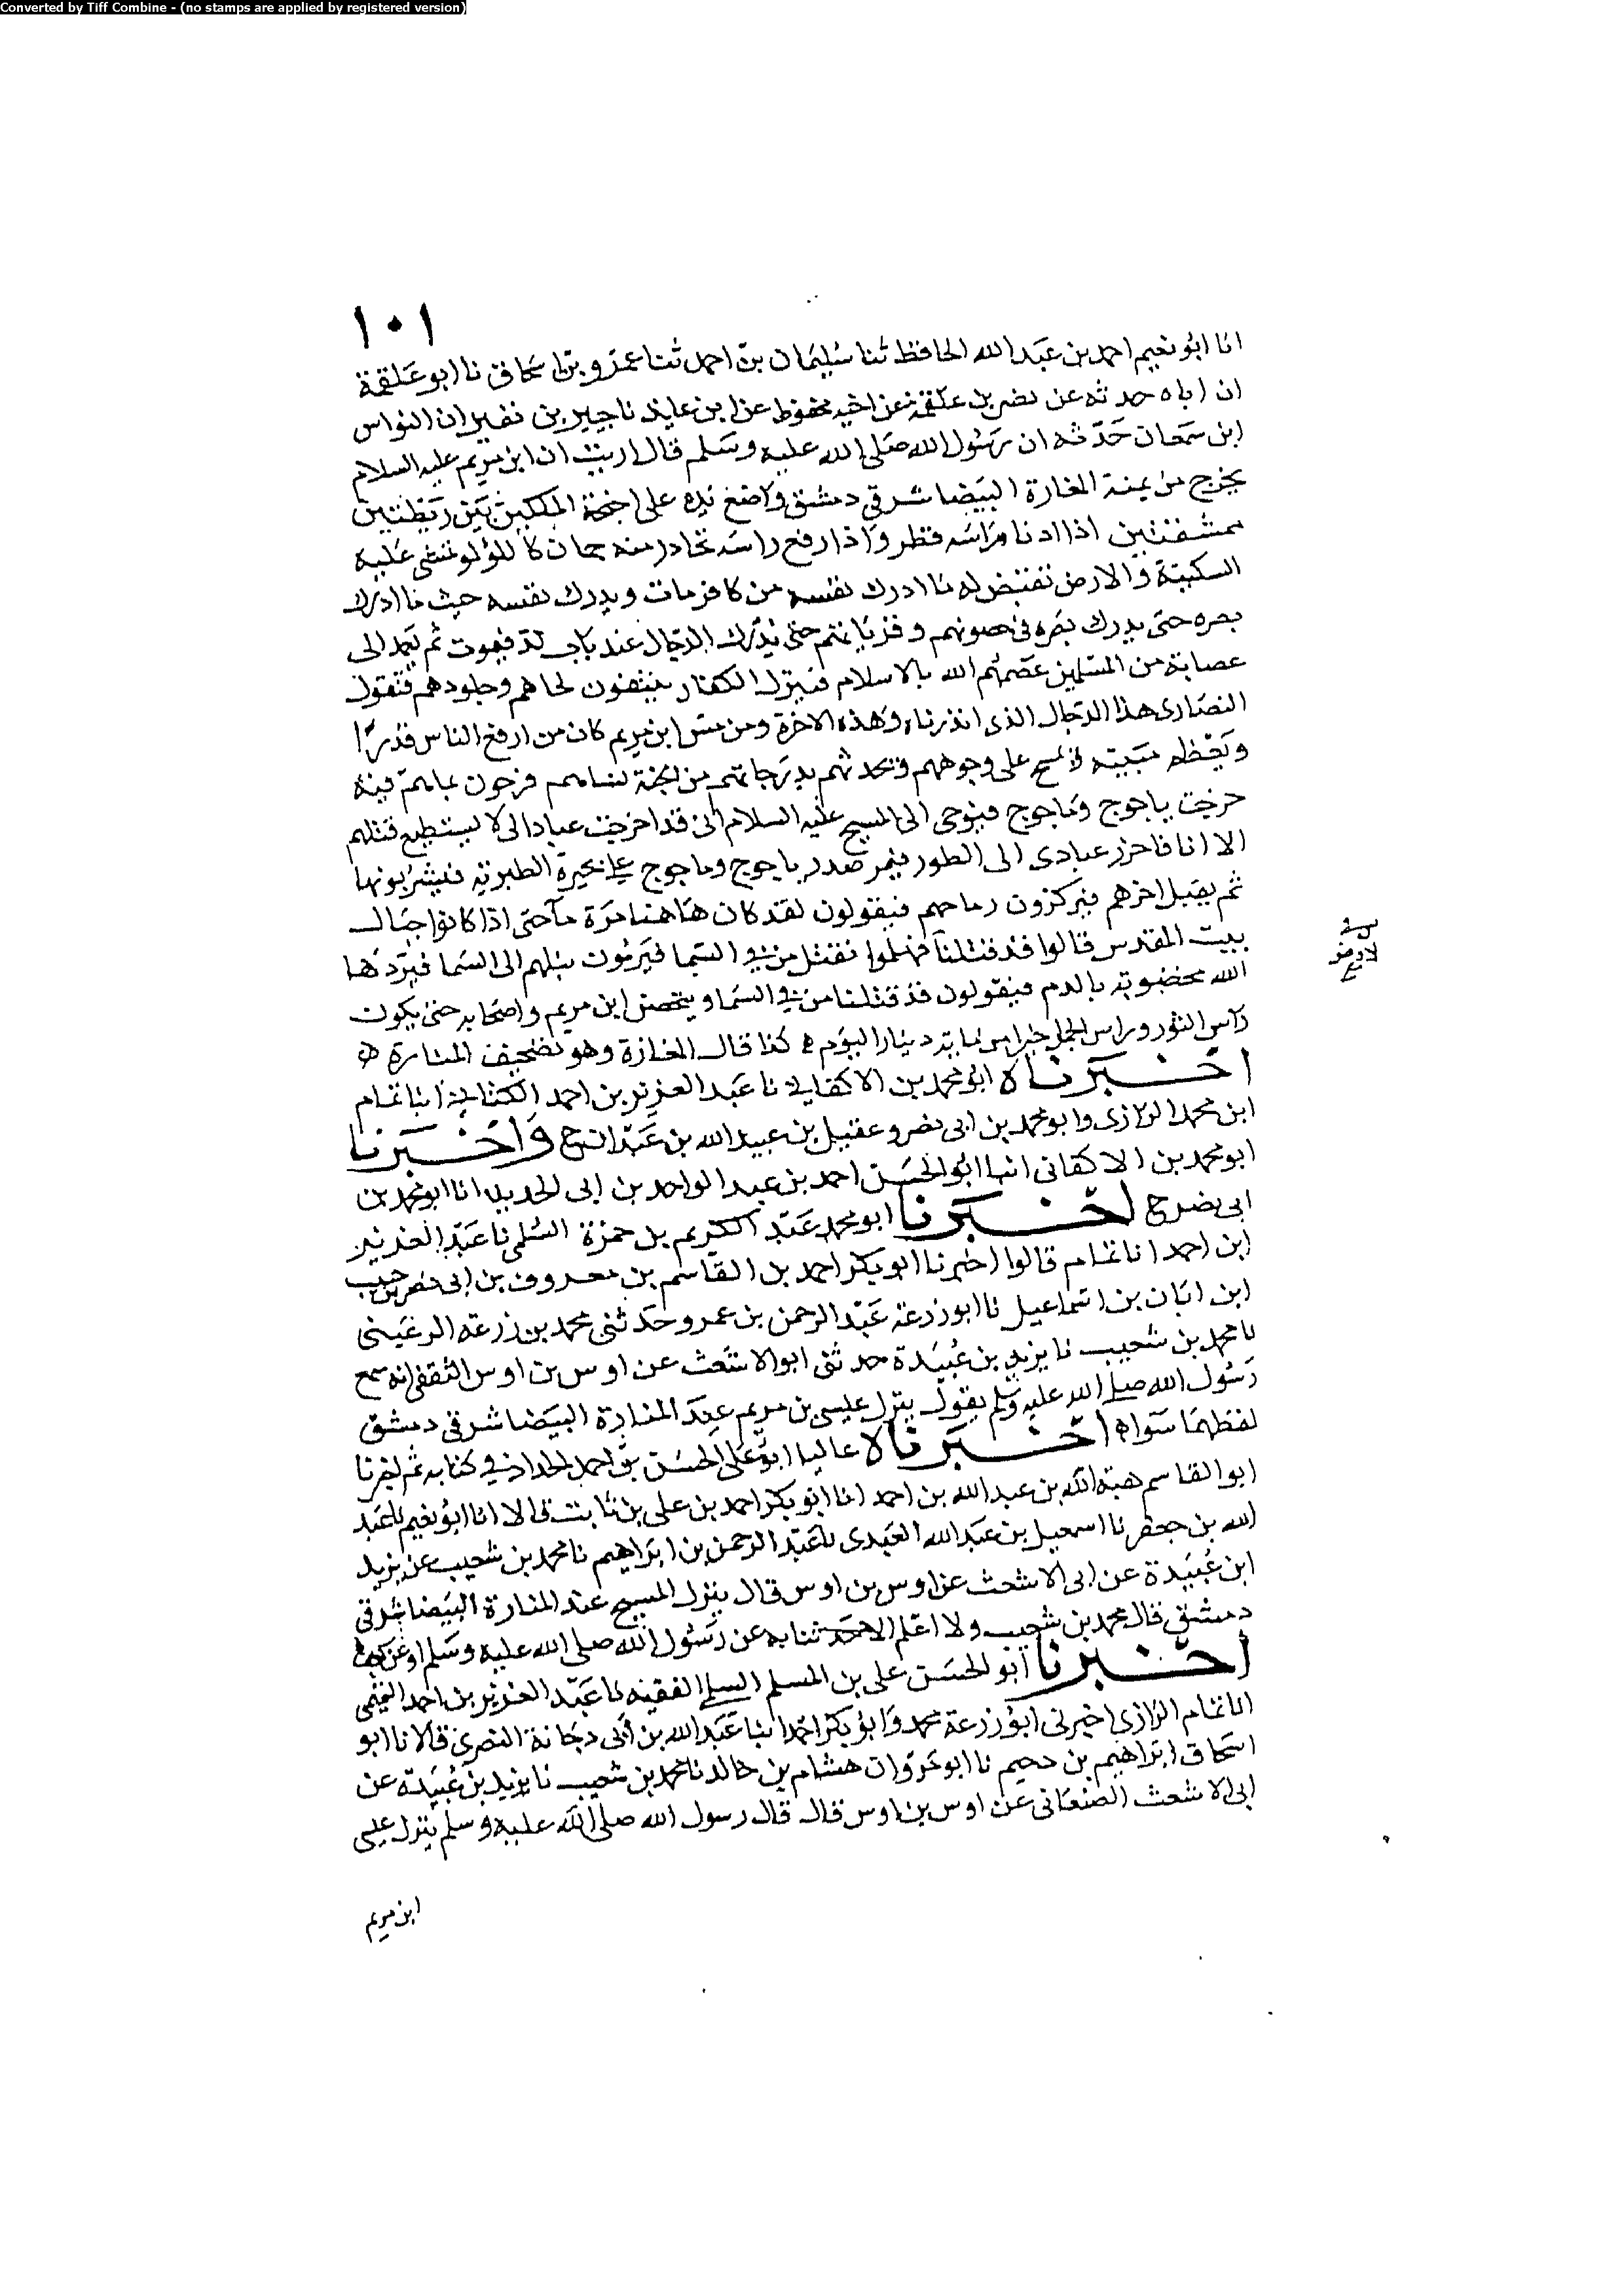 Converted by Tiff Combine - (no stamps are applied by registered version)
١٠١
انا ابو نعيم احمد بن عبد الله الحافظ ثنا سليمان بن احمد ثنا عمرو بن اسحاق نا ابو علقمة
ان اباه حدثه عن نصر بن علقمة عن اخيه محفوظ عن ابن عايذ نا جبير بن نفير ان النواس
ابن سمعان حدثه ان رسول الله صلى الله عليه وسلم قال اريت ان ابن مريم عليه السلام
يخرج من يمنة المغارة البيضا شرقي دمشق واضع يده على اجنحة الملكين بين ريطتين
ممشقتين اذا ادنا راسه قطر واذا رفع راسه تحادر منه جمان كاللؤلو يمشي عليه
السكينة والارض تقبض له ما ادرك نفسه من كافر مات ويدرك نفسه حيث ما ادرك
بصره حتى يدرك بصره في حصونهم حتى يدرك الدجال عند باب لد فيموت ثم يعمد الى
عصابة من المسلمين عصمهم الله بالاسلام فيترك الكفار ينتفون لحاهم وجلودهم فتقول
النصارى هذا الدجال الذي انذرناه وهذه الاخرة ومن مس ابن مريم كان من ارفع الناس قدرا
على وجوههم ويحدثهم بدرجاتهم من الجنة فرحون بما هم فيه
خرجت ياجوج وماجوج فيوحى الى المسيح عليه السلام اني قد اخرجت عبادا لي لا يستطيع قتلهم
الا انا فاحرز عبادي الى الطور فيمر صدر ياجوج وماجوج على بحيرة الطبرية فيشربونها
ثم يقبل اخرهم فيركزون رماحهم فيقولون لقد كان هاهنا مرة ما حتى اذا كانوا جبال
بيت المقدس قالوا قد قتلنا فهلموا نقتل من في السما فيرمون بنبلهم الى السما فيردها
الله مخضوبة بالدم فيقولون قد قتلنا من في السما ويتحصن ابن مريم واصحابه حتى يكون
راس الثور وراس الجمل خيرا من ماية دينار اليوم ه كذا قال المغارة وهو تصحيف المنارة ه
اخبرناه ابو محمد بن الاكفاني نا عبد العزيز بن احمد الكتاني انبا تمام
ابن محمد الرازي وابو محمد بن ابي نصر وعقيل بن عبيد الله بن عبدان ح واخبرنا
ابو محمد بن الاكفاني انبا ابو الحسن احمد بن عبد الواحد بن ابي الحديد انا ابو محمد بن
ابي نصر ح اخبرنا ابو محمد عبد الكريم بن حمزة السلمي نا عبد العزيز
ابن احمد انا تمام قالوا اخبرنا ابو بكر احمد بن القاسم بن معروف بن ابي نصر بن حبيب
ابن ابان بن اسماعيل نا ابو زرعة عبد الرحمن بن عمرو حدثني محمد بن زرعة الرعيني
نا محمد بن شعيب نا يزيد بن عبيدة حدثني ابو الاشعث عن اوس بن اوس الثقفي انه سمع
رسول الله صلى الله عليه وسلم يقول ينزل عيسى بن مريم عند المنارة البيضا شرقي دمشق
لفظهما سواه اخبرناه عاليا ابو علي الحسن بن احمد الحداد في كتابه ثم اخبرنا
ابو القاسم هبة الله بن عبد الله بن احمد انا ابو بكر احمد بن علي بن ثابت قالا انا ابو نعيم نا عبد
الله بن جعفر نا اسمعيل بن عبد الله العبدي نا عبد الرحمن بن ابراهيم نا محمد بن شعيب عن يزيد
ابن عبيدة عن ابي الاشعث عن اوس بن اوس قال ينزل المسيح عند المنارة البيضا شرقي
دمشق قال محمد بن شعيب ولا اعلم الا حدثنا به عن رسول الله صلى الله عليه وسلم او عن
اخبرنا ابو الحسن علي بن المسلم السلمي الفقيه نا عبد العزيز بن احمد التميمي
انا تمام الرازي اخبرني ابو زرعة محمد وابو بكر احمد ابنا عبد الله بن ابي دجانة النصري قالا نا ابو
اسحاق ابراهيم بن دحيم نا ابو مروان هشام بن خالد نا محمد بن شعيب نا يزيد بن عبيدة عن
ابي الاشعث الصنعاني عن اوس بن اوس قال قال رسول الله صلى الله عليه وسلم ينزل عيسى
ابن مريم